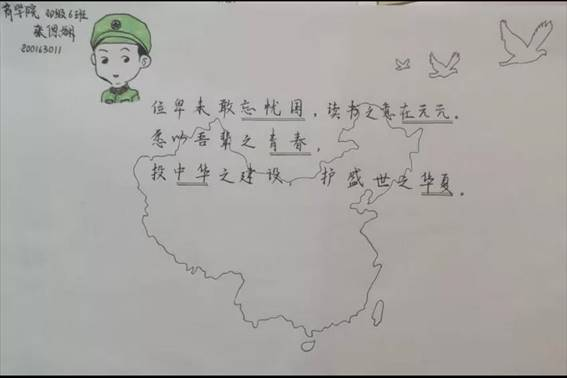 商学院 20级6班
200163011
位卑未敢忘忧国，读书之意在元元。
悉以吾辈之青春，
投中华之建设 护盛世之华夏。